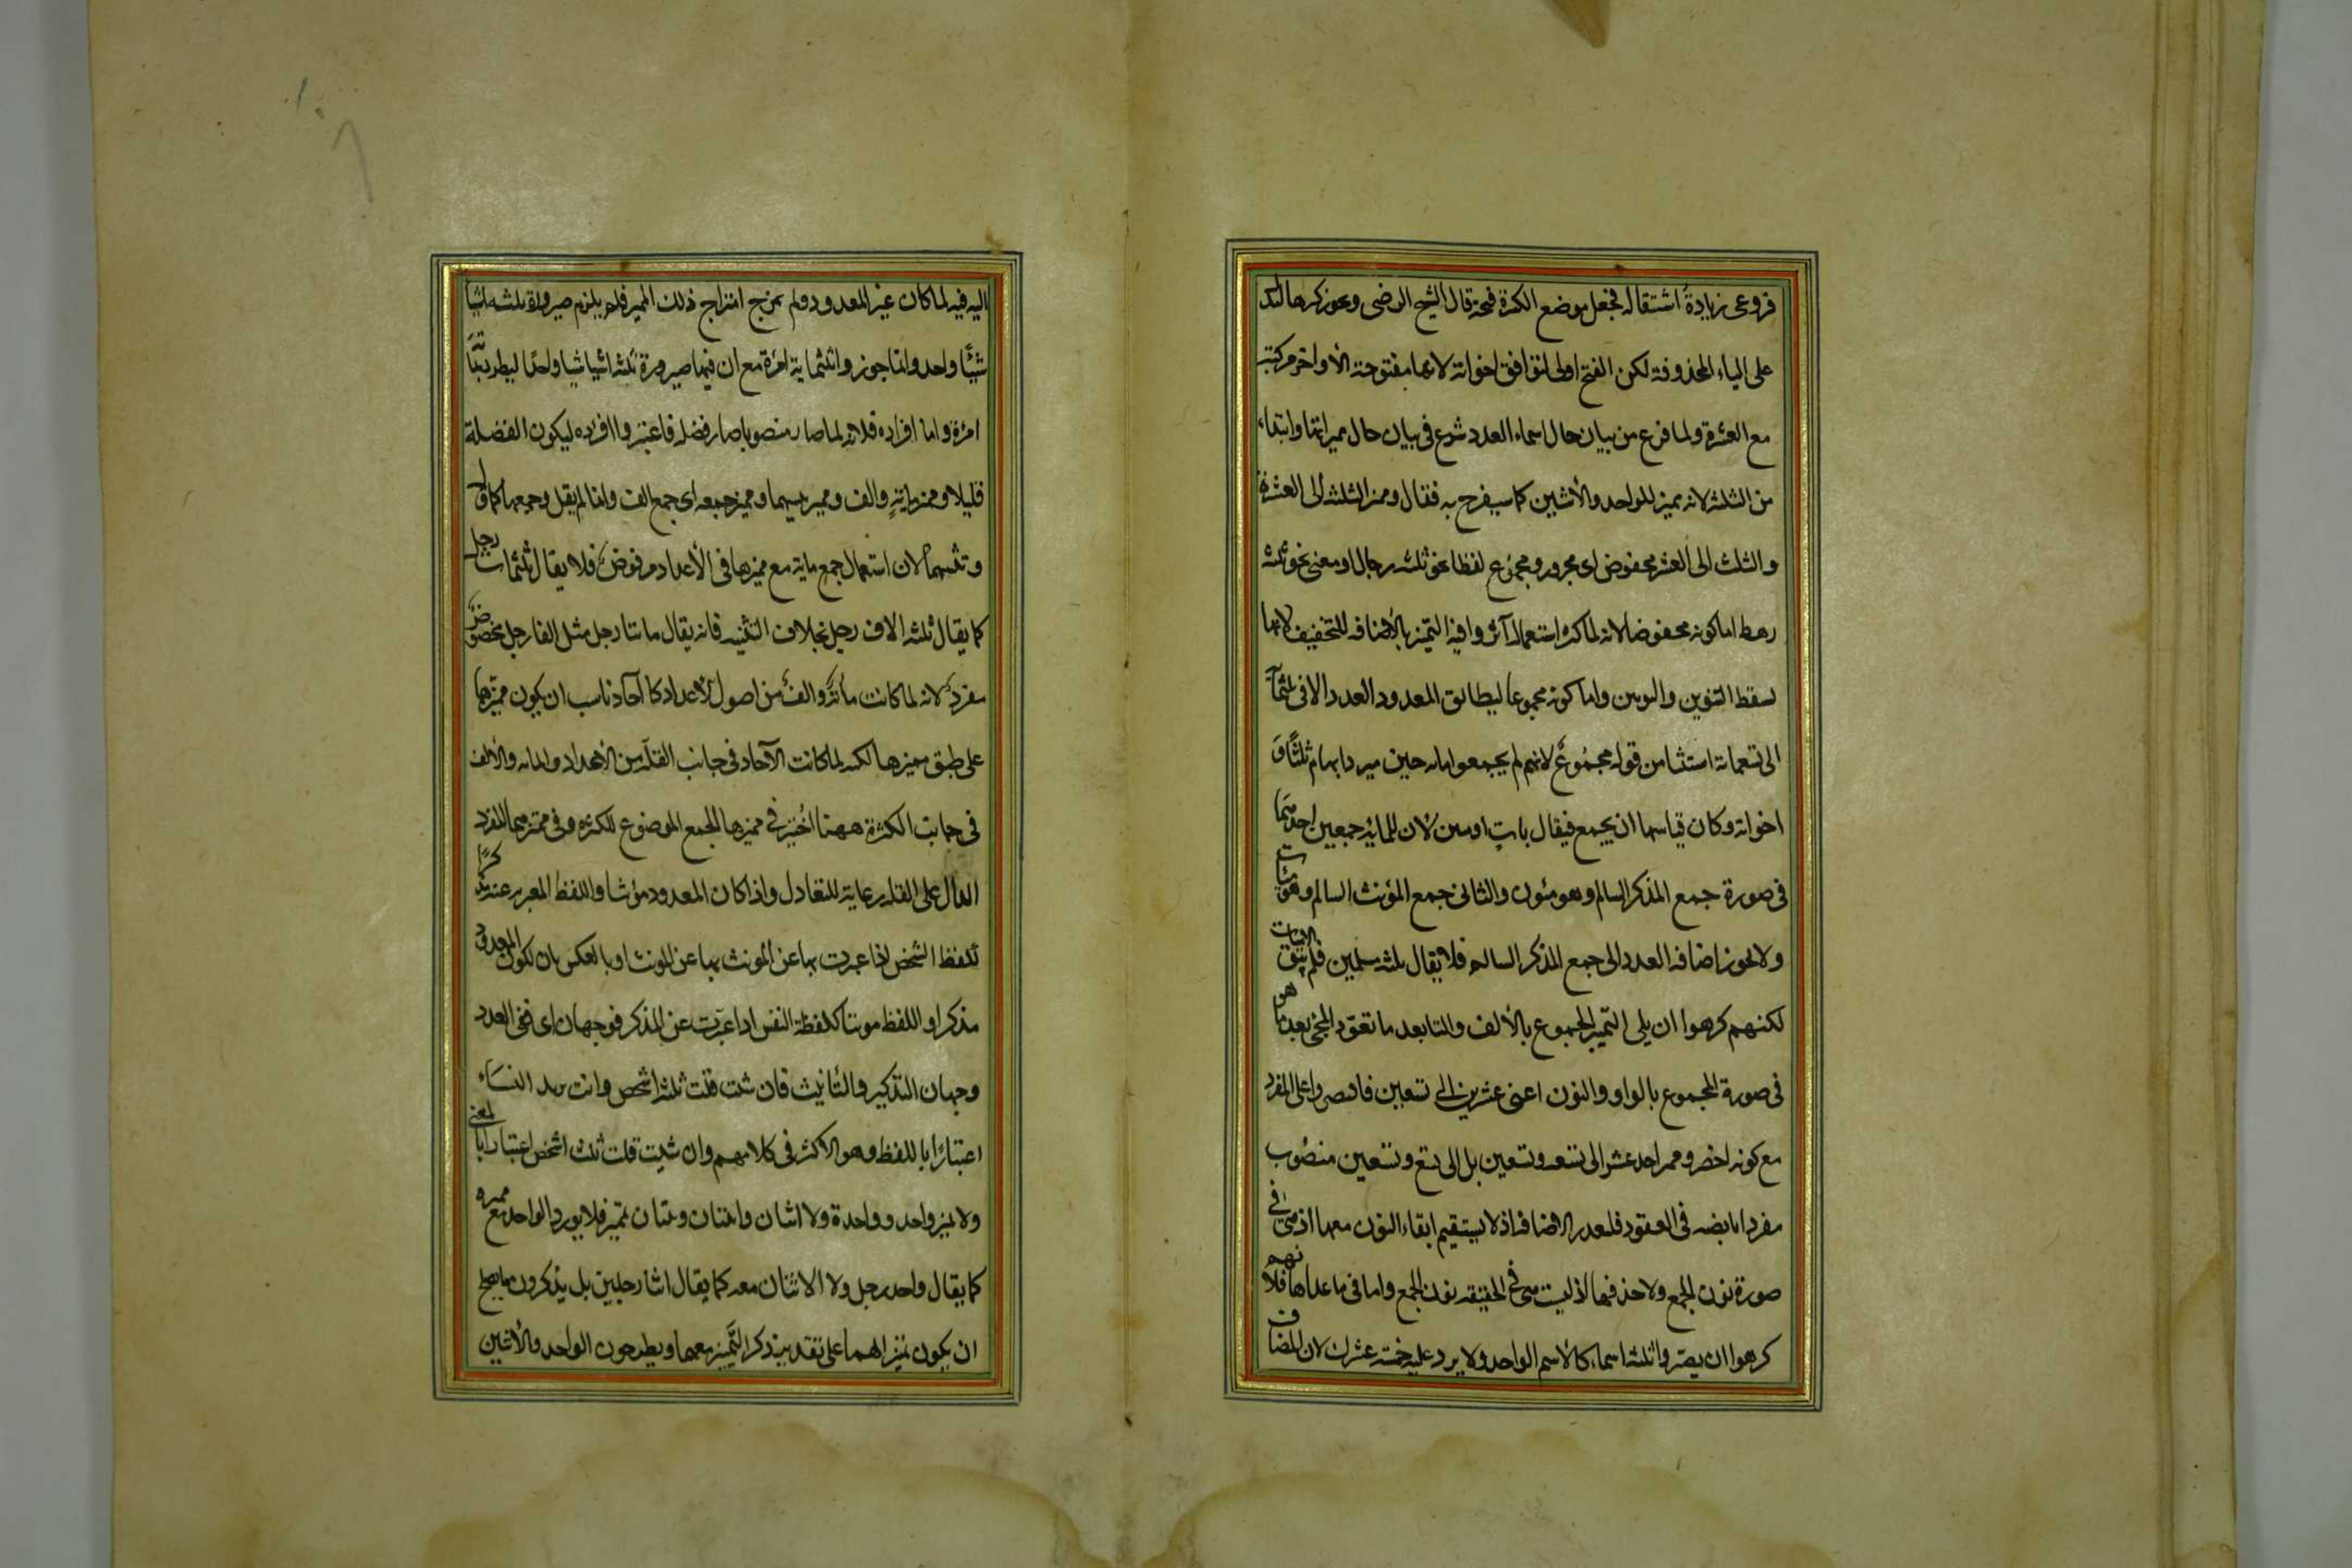 فروعى زيادة اشتقاله فجعل موضع الكسرة فتحة قال الشيخ الرضى ويجوز كسرها لتدل
على الياء المحذوفة لكن الفتح اولى لتوافق اخواته لانها مفتوحة الأواخر مركبة
مع العشرة ولما فرغ من بيان حال اسماء العدد شرع فى بيان حال مميزاتها وابتداء
من الثلثة لانه مميز للواحد والأثنين كما سيفرح به فقال ومميز الثلثة الى العشرة
والثلث الى العشر مخفوض اى مجرور ومجموع لفظا نحو ثلثه رجال او معنى نحو ثلثه
رهط اما كونه مخفوضا لانه لما كثر استعماله آثروا فيه التميز بالأضافه للتخفيف لانها
تسقط التنوين والنونين واما كونه مجموعا ليطابق المعدود العدد الا فى ثلثمآ
الى تسعمائة استثنا من قوله مجموع لانهم لم يجمعوا مائه حين ميزوا بها ثلثا و
اخواته وكان قياسها ان يجمع فيقال مات او مئين لان للمائه جمعين احديهما
فى صورة جمع المذكر السالم وهو مئون والثانى جمع المؤنث السالم وهو مئات
ولا يجوز اضافه العدد الى جمع المذكر السالم فلا يقال ثلثه مسلمين فلم يبق الا مئات
لكنهم كرهوا ان يلى التميز المجموع بالألف والتا بعد ما تعود المجئ بعد ما هو
فى صورة المجموع بالواو والنون اعنى عشرين الى تسعين فاقتصروا على المفرد
مع كونه اخصر ومميز احد عشر الى تسعه وتسعين بل الى تسع وتسعين منصوب
مفرد اما نصبه فى العقود فلتعذر الاضافه اذ لا يستقيم ابقاء النون معها اذ هى فى
صورة نون الجمع ولا حذفها اذ ليست هى فى الحقيقه نون الجمع واما فى ما عداها فلانهم
كرهوا ان يصيروا ثلثه اسماء كالأسم الواحد ولا يرد عليه خمسة عشرك لان المضاف
اليه فيه لما كان غير المعدود ولم يمزج امتزاج ذلك المميز فلم يلزم صيرورة ثلثه اشيا
شيئا واحد وانما جوزوا ثلثماية امرة مع ان فيها صيرورة ثلثه اشيا شيا واحدا ليطرد
امرة واما افراده فلانه لما صار منصوبا صار فضله فاعتبروا افراده ليكون الفضلة
قليلا ومميز ماية والف ومميز تثنيتهما ومميز جمعه اى جمع الف وانما لم يقل وجمعهما كما قال
وتثنيتهما لان استعمال جمع ماية مع مميزها فى الأعداد مرفوض فلا يقال ثلثمات رجل
كما يقال ثلثه الاف رجل بخلاف التثنيه فانه يقال مائتا رجل مثل الفا رجل مخفوض
مفرد لانه لما كانت مائة والف من اصول الأعداد كا آحاد ناسب ان يكون مميزها
على طبق مميزها لكنه لما كانت الآحاد فى جانب القلة من الأعداد والمائه والألف
فى جانب الكثرة ههنا اختير فى مميزها الجمع الموضوع للكثره وفى مميزهما المفرد
الدال على القله رعاية للتعادل واذا كان المعدود مؤنثا واللفظ المعبر به عنه مذكرا
كلفظ الشخص اذا عبرت بها عن المؤنث بها عن المونث او بالعكس بان يكون المعدود
مذكرا واللفظ مونثا كلفظة النفس اذا عبرت عن المذكر فوجهان اى ففى العدد
وجهان التذكير والتأنيث فان شئت قلت ثلثه اشخص وانت تريد النساء
اعتبارا باللفظ وهو الأكثر فى كلامهم وان شئت قلت ثلث اشخص اعتبارا بالمعنى
ولا يميز واحد وواحدة ولا اثنان واثنتان وثنتان تميز فلا يورد الواحد مع مميزه
كما يقال واحد رجل ولا الاثنان معه كما يقال اثنا رجلين بل يذكرون ما يصلح
ان يكون تميزا لهما على تقدير ذكر التميز معهما ويطرحون الواحد والأثنين